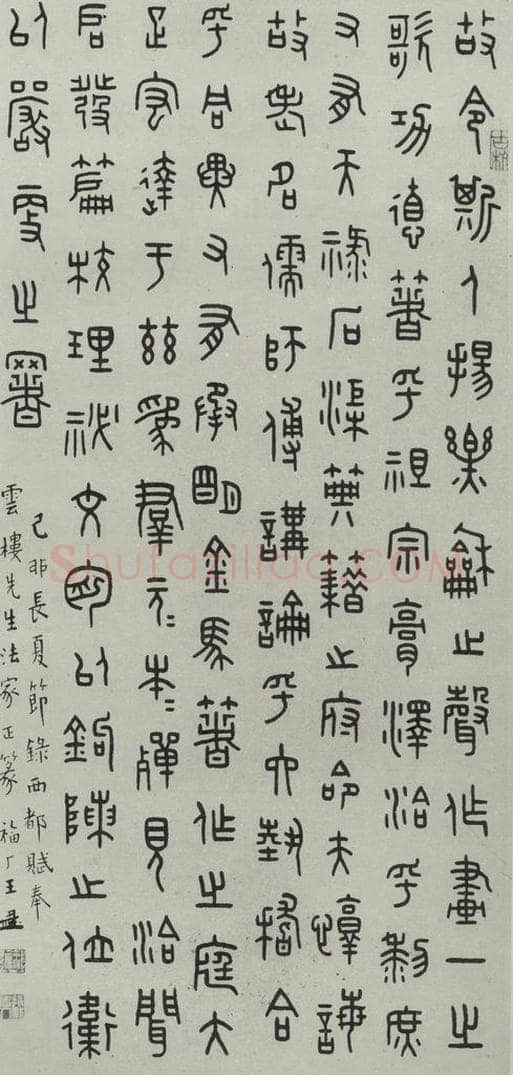 故令斯人揚樂龢之聲作畫一之
歌功德著乎祖宗膏澤洽乎黎庶
又有天祿石渠典籍之府命夫惇誨
故老名儒師傅講論乎六藝稽合
乎同異又有承明金馬著作之庭大
疋宏達于茲為群元=本=殫見洽聞
启發篇校理祕文周以鉤陳之位衛
以嚴更之署
己卯長夏節錄西都賦奉
雲樓先生法家正篆 福厂王禔
Shufaziliao.COM